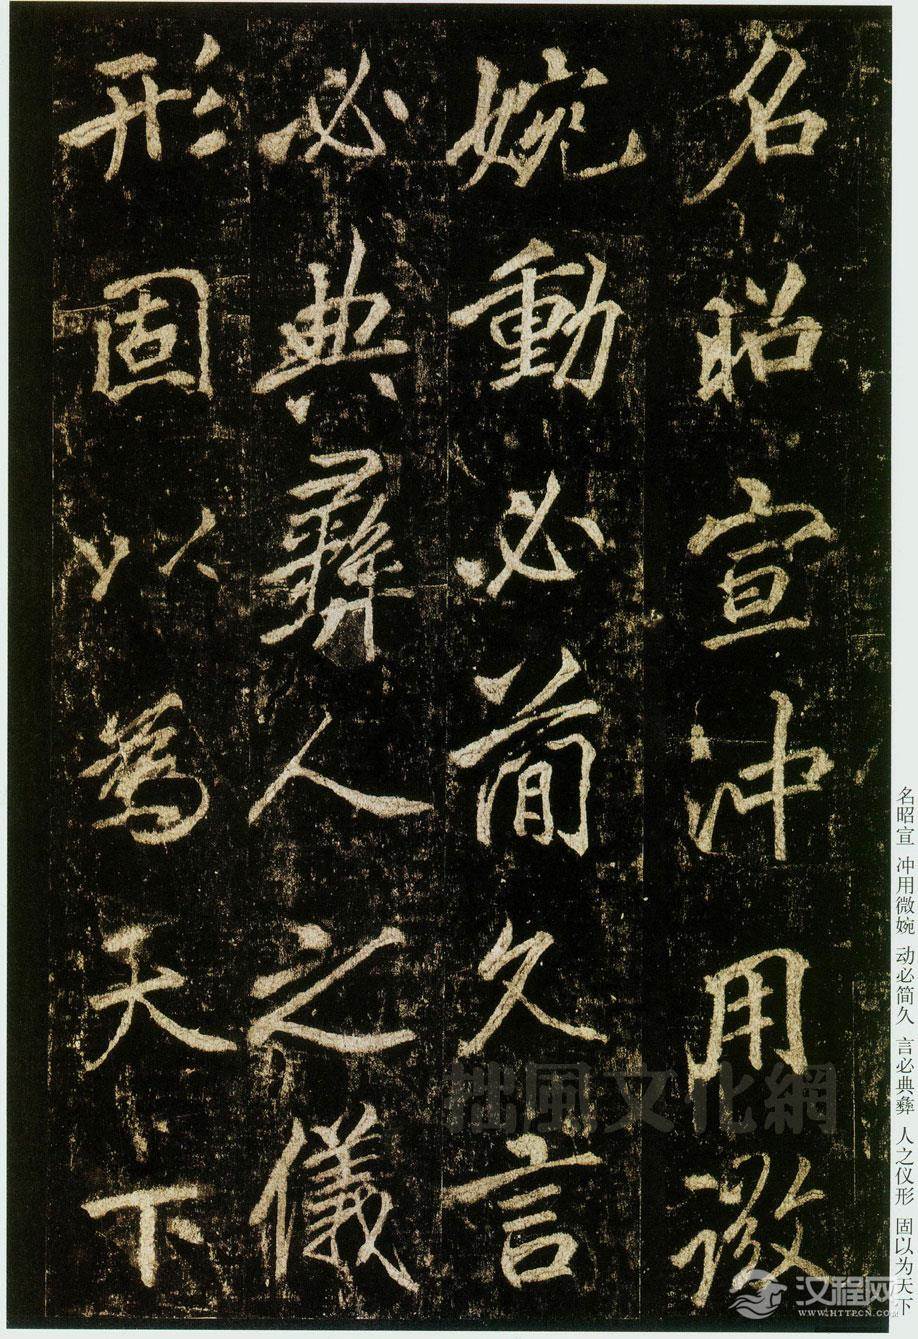 名昭宣冲用微
婉動必簡久言
必典彝人之儀
形固以為天下
名昭宣 冲用微婉 动必简久 言必典彝 人之仪形 固以为天下
拙風文化網
汉程网
WWW.HTTPCN.COM